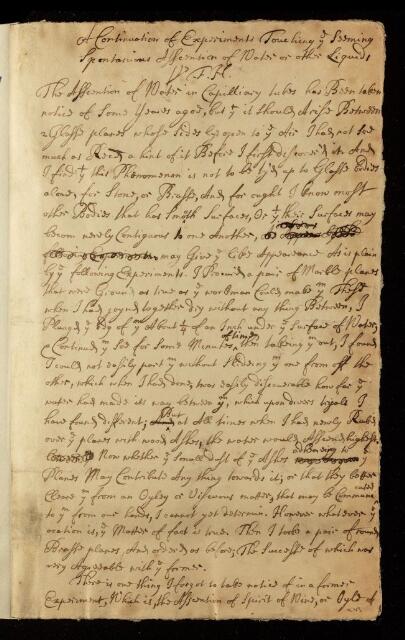 A Continuation of Experiments Touching yͤ Seeming
Spontanious Assention of Water or other Liquids
pͬ F. H.
The Assention of Water in Capilliary tubes has Been taken
notice of Some Yeares agoe, but yͭ it should Arise Between
2 Glasse planes whose sides ly open to yͤ Air I had not soe
much as Recd a hint of it Before I first discover'd it. And
I find yͭ this Phenomenon is not to be ty'd up to Glasse bodies
alone, for Stone, or Brasse, And for ought I know most
other Bodies that has smooth Surfaces, Or yͭ their Surfaces may
becom neerly Contiguous to one Another,
may Give yͤ like Appearance As is plain
by yͤ following Experiments. I Provided a pair of Marble planes
that were Ground as true as yͤ workman Could make yͫ These
when I had joynd together dry without any thing Between, I
Plung'd yͤ Edg of yͫ About ¼ of an Inch under yͤ Surface of Water,
& Continued yͫ Soe for Some Minutes of time, then takeing yͫ out, I found
I could not easily part yͫ without Slideing yͫ one from off the
other, which when I had done, twas easily discoverable how far yͤ
water had made its way between yͫ, which upon divers tryals I
have found different; But at All times when I had newly Rubbd
over yͤ planes with wood Ashes, the water would Assend highest,
Now whether yͤ Small dust of yͤ Ashes adhereing to yͤ
Planes May Contribute Any thing towards it; or that they better
Cleare yͫ from an Oyley or Viscuous matter, that may be Communicated
to yͫ from our hands, I cannot yet determin. However whatever yͤ
ocation is, yͤ Matter of fact is true. Then I tooke a pair of round
Brasse planes And order'd as before; The Successe of which was
very Agreeable with yͤ former.
There is one thing I forgot to take notice of in a former
Experiment, Which is the Assention of Spirit of Wine, or Oyle of